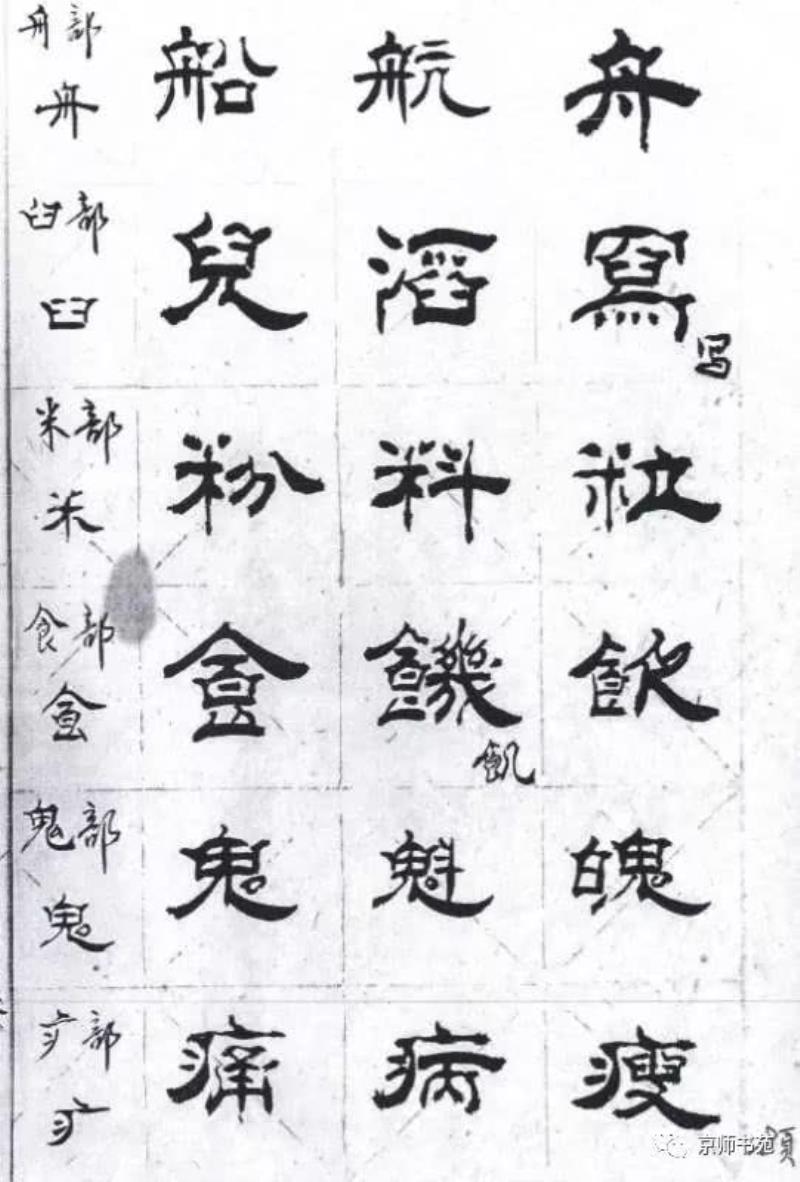 舟部
舟
船 航 舟
臼部
臼
兒 滔 寫
写
米部
米
粉 料 粒
食部
食
食 饑 飲
飢
鬼部
鬼
鬼 魁 魄
疒部
疒
痛 病 瘦
京师书苑